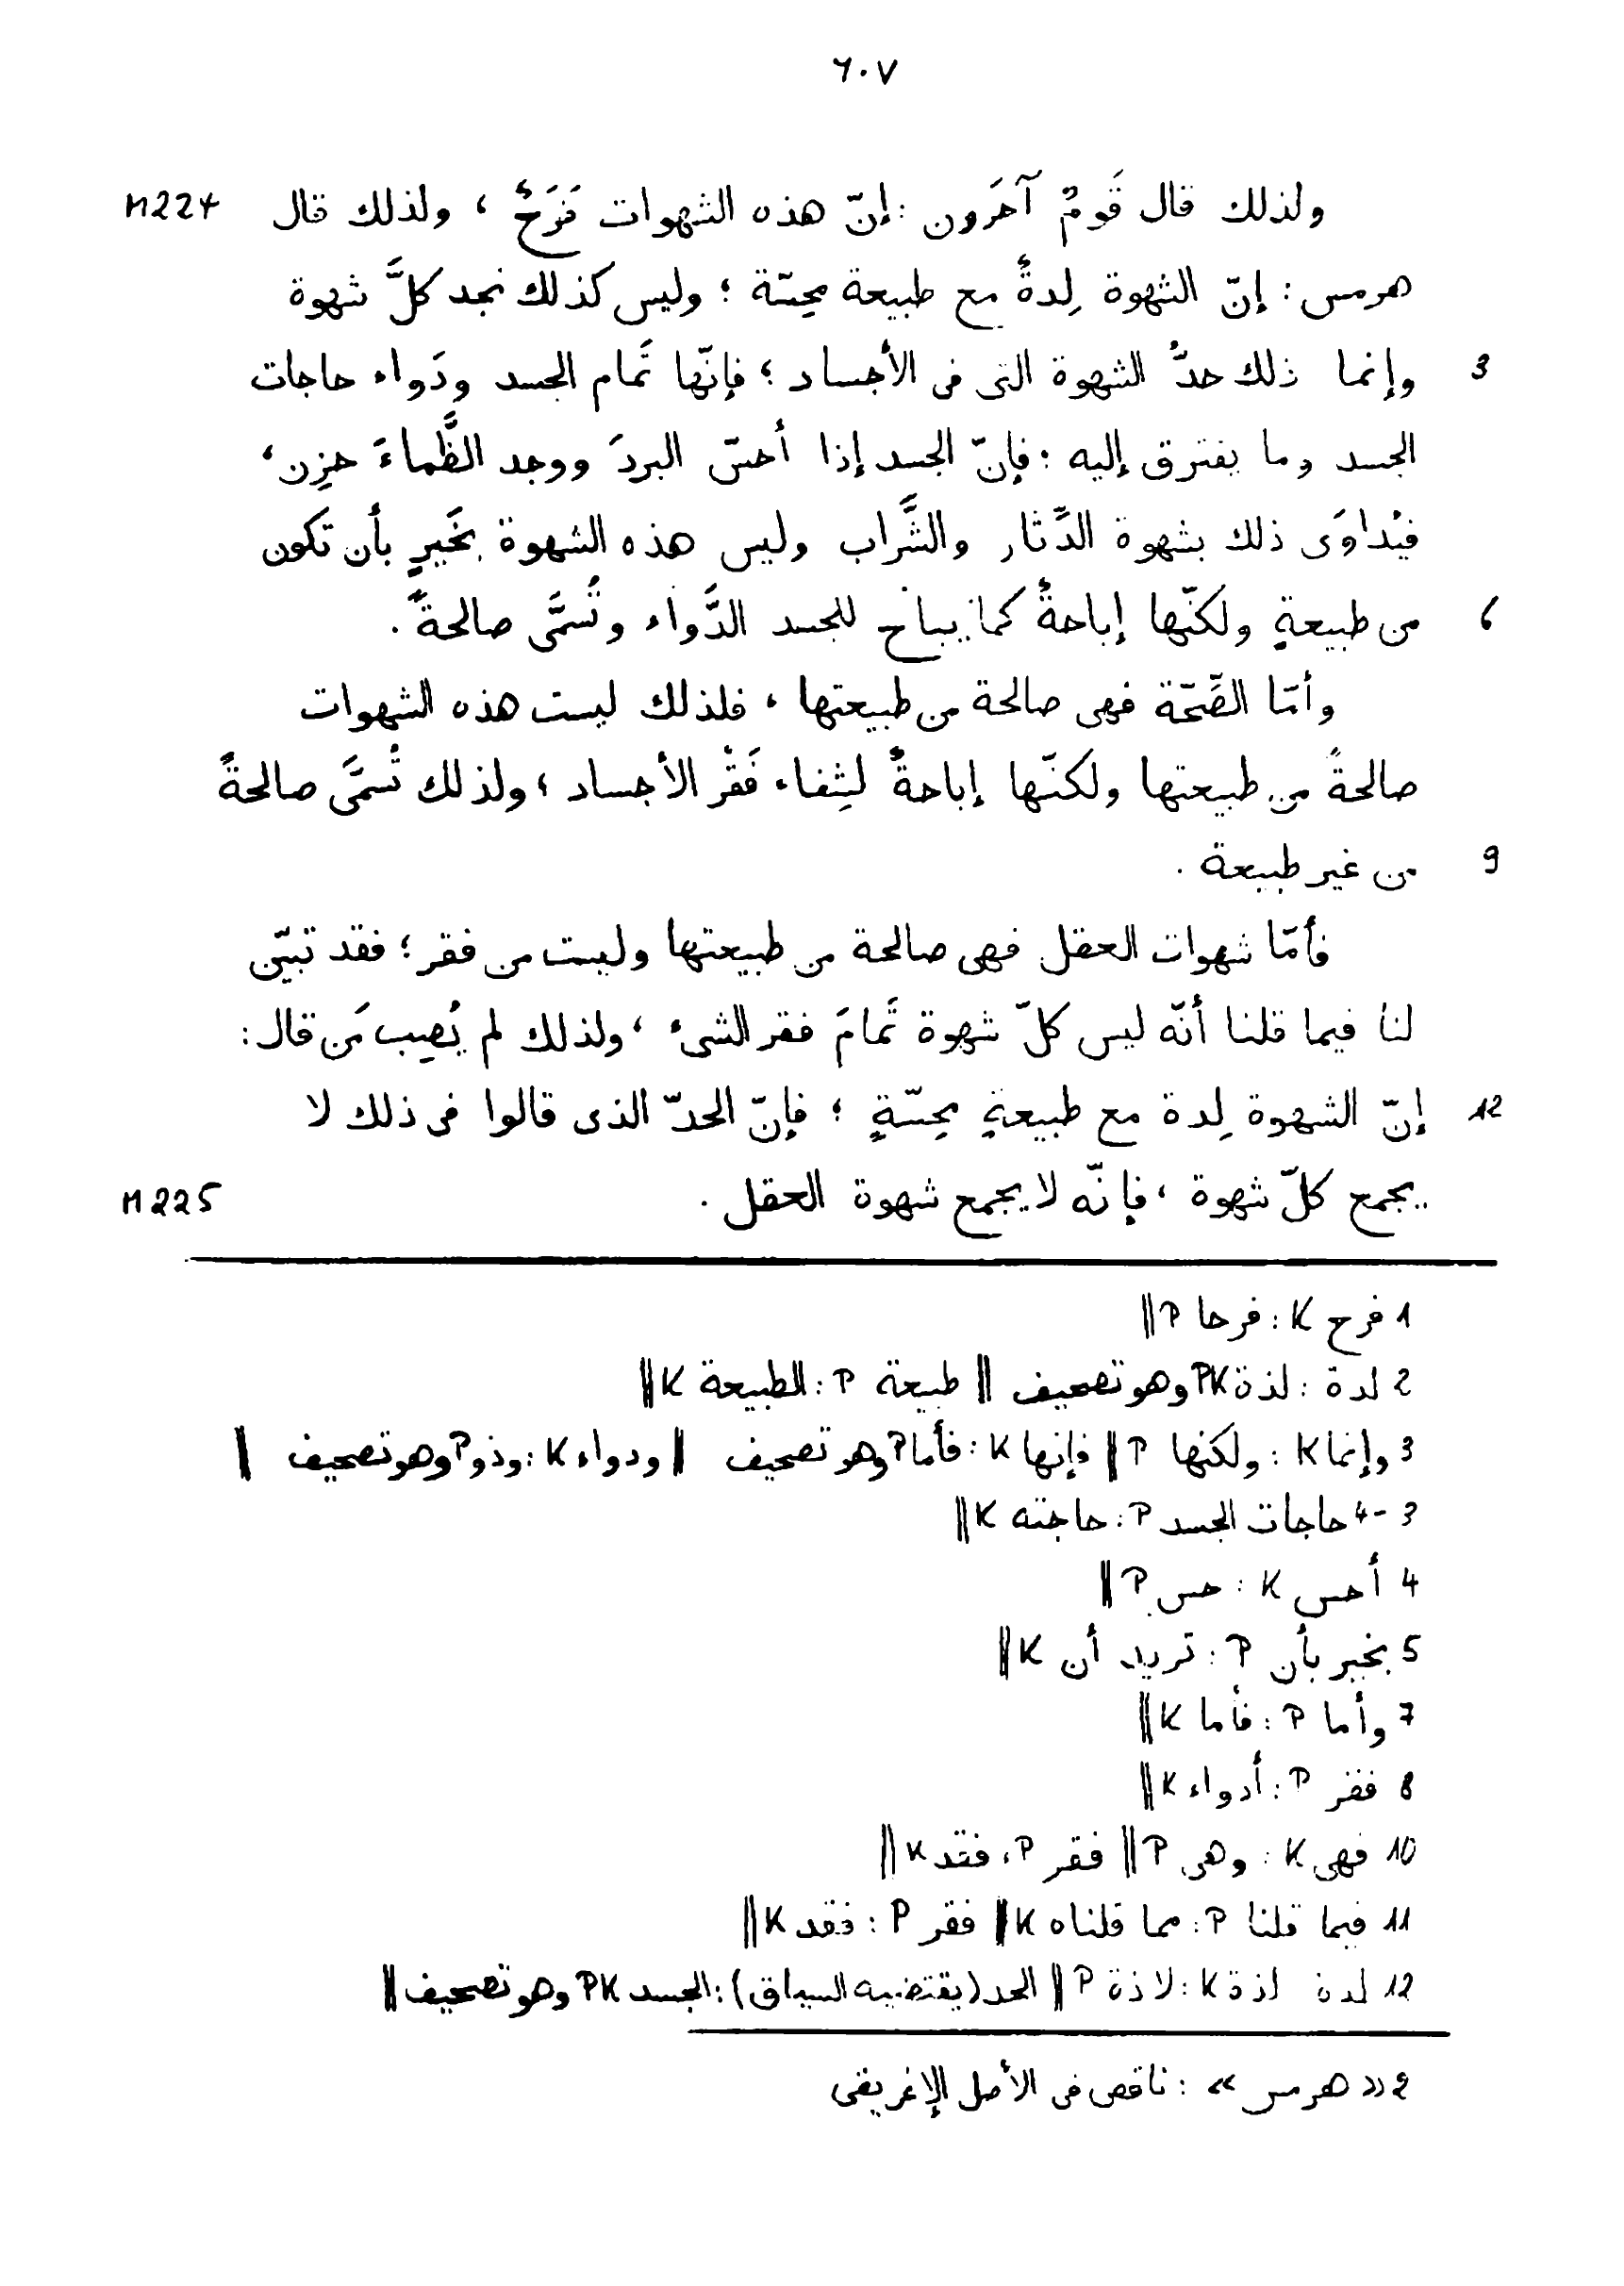 ٦٠٧
ولذلك قال قَومٌ آخَرون : إنّ هذه الشهوات فَرَحٌ ، ولذلك قال M224
هرمس : إنّ الشهوة لِدةٌ مع طبيعة محِسّة ؛ وليس كذلك نجد كلَّ شهوة
3 وإنما ذلك حدُّ الشهوة التى فى الأجساد ؛ فإنّها تَمام الجسد ودَواء حاجات
الجسد وما يفترق إليه ؛ فإنّ الجسد إذا أحسّ البردَ ووجد الظَّماءَ حزِن ،
فيُداوَى ذلك بشهوة الدَّثار والشَّراب وليس هذه الشهوة بخَيرٍ بأن تكون
6 من طبيعةٍ ولكنّها إباحةٌ كما يباح للجسد الدَّواء وتُسمَّى صالحةً .
وأمّا الصِّحّة فهى صالحة من طبيعتها ، فلذلك ليست هذه الشهوات
صالحةً من طبيعتها ولكنّها إباحةٌ لشِفاء فَقْر الأجساد ؛ ولذلك تُسمَّى صالحةً
9 من غير طبيعة .
فأمّا شهوات العقل فهى صالحة من طبيعتها وليست من فقر ؛ فقد تبيّن
لنا فيما قلنا أنّه ليس كلّ شهوة تَمامَ فقر الشىء ، ولذلك لم يُصِب مَن قال :
12 إنّ الشهوة لِدة مع طبيعةٍ محِسّةٍ ؛ فإنّ الحدّ الذى قالوا فى ذلك لا
يجمع كلّ شهوة ، فإنّه لا يجمع شهوة العقل . M225
1 فرح K : فرحا P ||
2 لدة : لذة PK وهو تصحيف || طبيعة P : الطبيعة K ||
3 وإنما K : ولكنها P || فإنها K : فأما P وهو تصحيف || ودواء K : وذو P وهو تصحيف ||
3-4 حاجات الجسد P : حاجته K ||
4 أحس K : حس P ||
5 بخير بأن P : تريد أن K ||
7 وأما P : فأما K ||
8 فقر P : أدواء K ||
10 فهى K : وهى P || فقر P : فقد K ||
11 فيما قلنا P : مما قلناه K || فقر P : فقد K ||
12 لدة لذة K : لاذة P || الحد (يقتضيه السياق) : الجسد PK وهو تصحيف ||
2 « هرمس » : ناقص فى الأصل الإغريقى